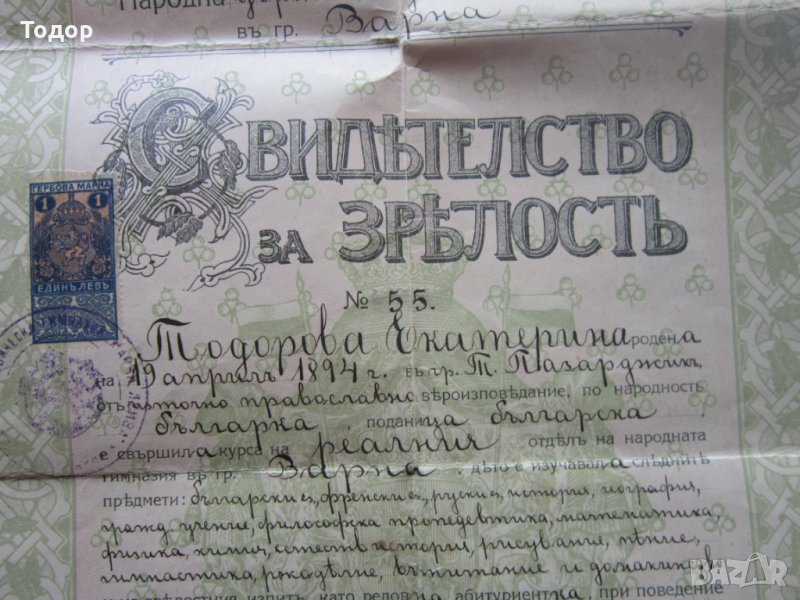 Тодор
Народна
въ гр. Варна
СВИДѢТЕЛСТВО
ЗА ЗРѢЛОСТЬ
ГЕРБОВА МАРКА
1 1
ЕДИНЪ ЛЕВЪ
№ 55.
Тодорова Екатерина родена
на 19 априлъ 1894 г. въ гр. Т. Пазарджикъ,
отъ източно православно вѣроизповѣдание, по народность
българка поданица българска
е свършила курса на реалния отдѣлъ на народната
гимназия въ гр. Варна, дѣто е изучавала слѣднитѣ
предмети: български ез, френски ез, руски ез, история, география,
гражд. учение, философска пропедевтика, математика,
физика, химия, естеств. история, рисуване, пѣние,
гимнастика, рѫкодѣлие, възпитание и домакинство
изпитъ, като редовна абитуриентка, при поведение
bazar.bg